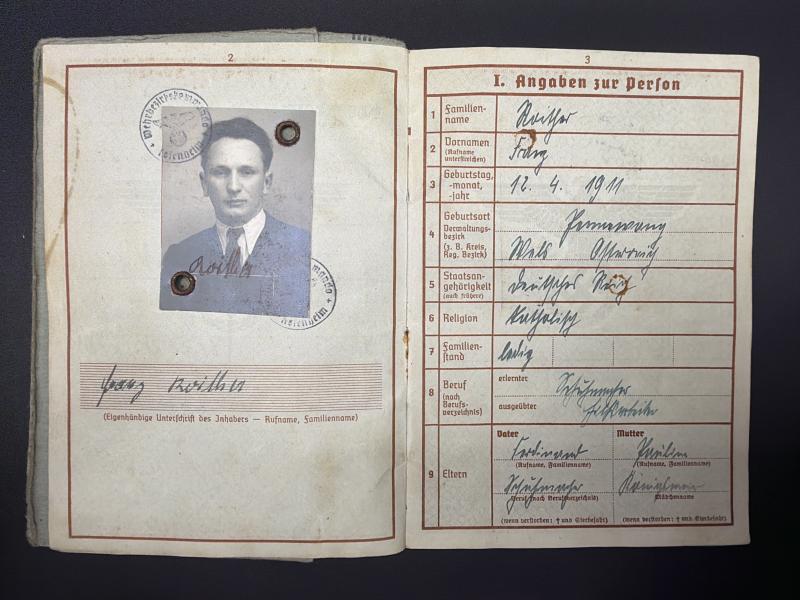 2
Wehrbezirkskommando
Rosenheim
Roither
Franz Roither
(Eigenhändige Unterschrift des Inhabers — Rufname, Familienname)
3
I. Angaben zur Person
1 Familienname Roither
2 Vornamen (Rufname unterstreichen) Franz
3 Geburtstag, -monat, -jahr 12. 4. 1911
4 Geburtsort Pennewang
Verwaltungsbezirk (z. B. Kreis, Reg. Bezirk) Wels Österreich
5 Staatsangehörigkeit (auch frühere) Deutsches Reich
6 Religion katholisch
7 Familienstand ledig
8 Beruf (nach Berufsverzeichnis) erlernter Schuhmacher
ausgeübter Hilfsarbeiter
9 Eltern
Vater Mutter
Ferdinand Pauline
(Rufname, Familienname) (Rufname, Familienname)
Schuhmacher
(Beruf nach Berufsverzeichnis) Mädchenname
(wenn verstorben: † und Sterbejahr) (wenn verstorben: † und Sterbejahr)